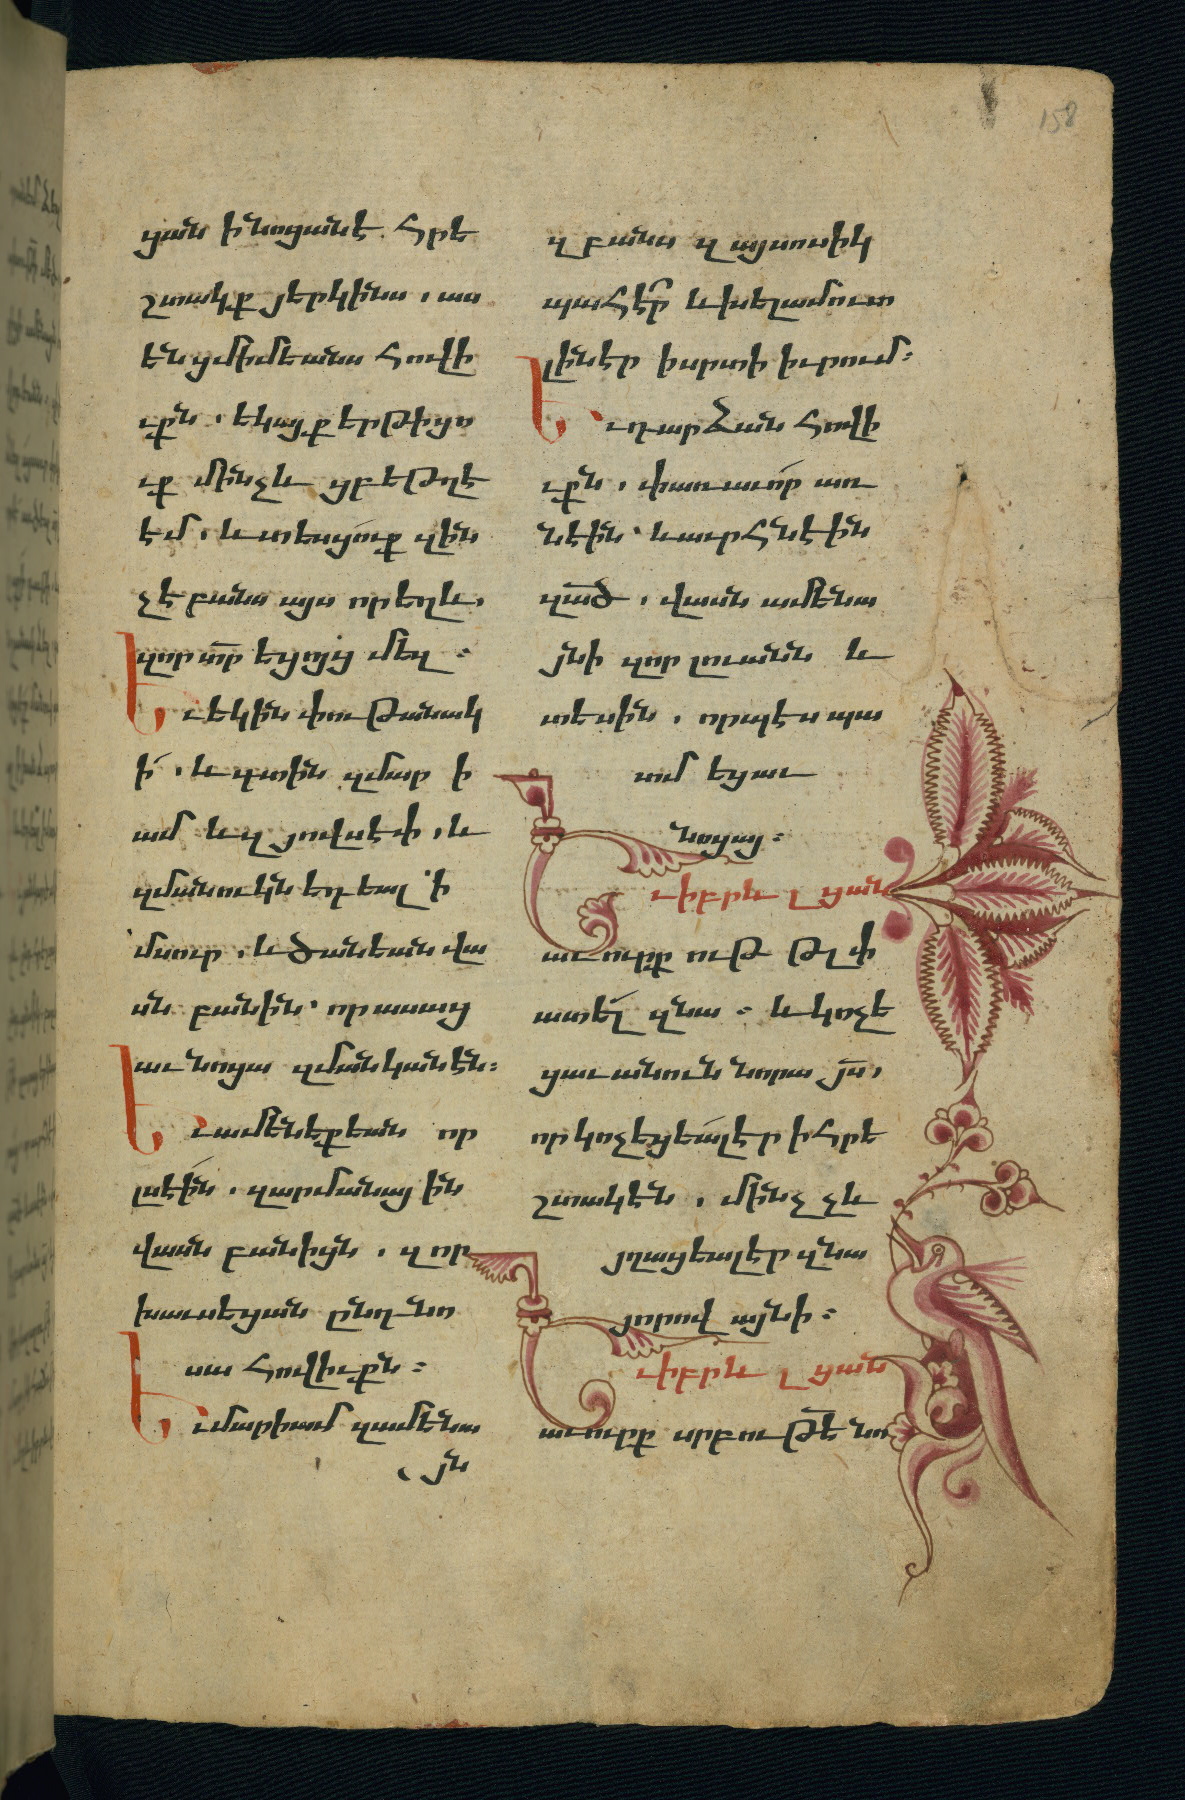 158
ցան ի նոցանէ. հրե
շտակք յերկինս, աս
էն ցմիմեանս հովի
ւքն, եկայք երթիցո
ւք մինչև ցբեթղէ
էմ, և տեսցուք զին
չէ բանս այս որ եղև,
զոր տր եցոյց մեզ։
Եւ եկին փութանակ
ի, և գտին զմար ի
ամ և զյովսէփ, և
զմանուկն եդեալ ի
մսուր, և ծանեան վա
սն բանին՝ որ ասաց
աւ նոցա զմանկանէն։
Եւ ամենեքեան որ
լսէին, զարմանայ ին
վասն բանիցն, զ որ
խաւսեցան ընդ նո
սա հովիւքն։
Եւ մարիամ զամենա
յն
զ բանս զ այսոսիկ
պահէր և խելամուտ
լինէր ի սրտի իւրում։
Եւ դարձան հովի
ւքն, փառաւոր առ
նէին՝ և աւրհնէին
զած, վասն ամենա
յնի զոր լուանն և
տեսին, որպէս պա
տմ եցաւ
նոցայ։
Եւ իբրև լ ցան
աւուրք ութ թլ փ
ատել զնա։ և կոչե
ցաւ անուն նորա յս,
որ կոչեցեալ էր ի հրե
շտակէն, մինչ չև
յղացեալ էր զնա
յորովայնի։
Եւ իբրև լ ցան
աւուրք սրբութե նո